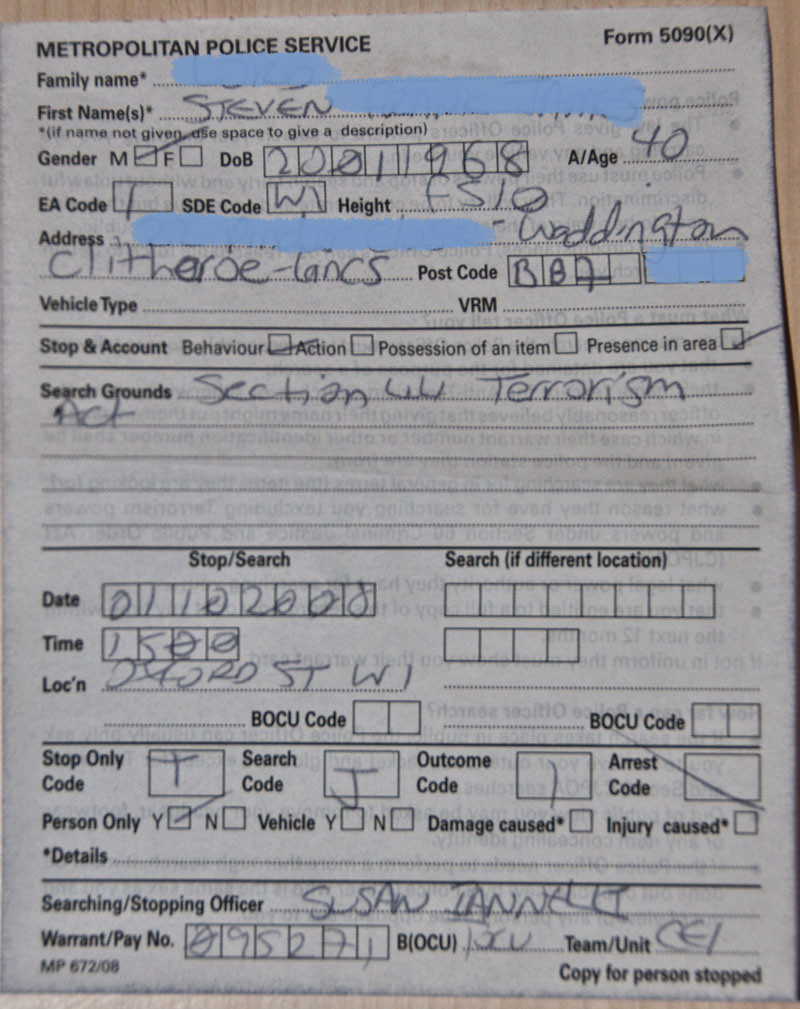 METROPOLITAN POLICE SERVICE Form 5090(X)
Family name*
First Name(s)* STEVEN
*(if name not given, use space to give a description)
Gender M F DoB 20011968 A/Age 40
EA Code 1 SDE Code W1 Height FS10
Address - Waddington
Clitheroe - Lancs Post Code BB7
Vehicle Type VRM
Stop & Account Behaviour Action Possession of an item Presence in area
Search Grounds Section 44 Terrorism
Act
Stop/Search Search (if different location)
Date 01102008
Time 1500
Loc'n OXFORD ST W1
BOCU Code BOCU Code
Stop Only Code T Search Code I Outcome Code 1 Arrest Code
Person Only Y N Vehicle Y N Damage caused* Injury caused*
*Details
Searching/Stopping Officer SUSAN IANNELLI
Warrant/Pay No. B(OCU) Team/Unit
MP 672/08 Copy for person stopped